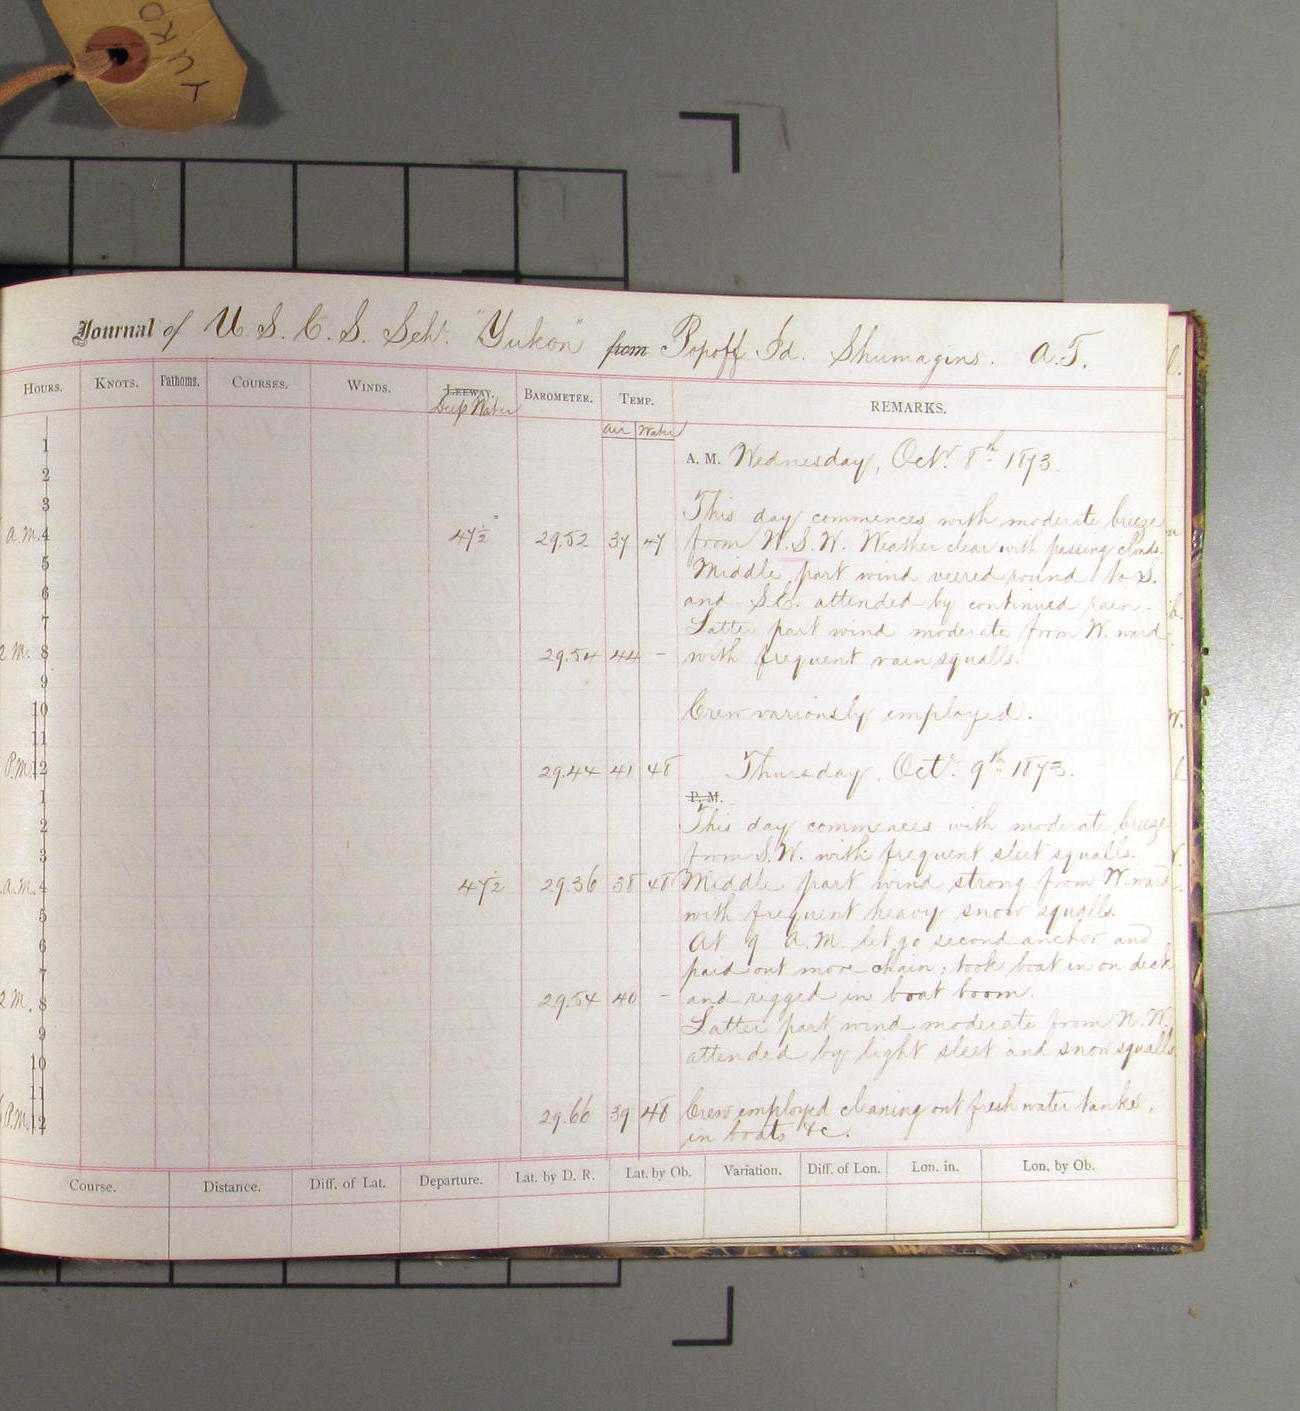 YUKO
Journal of U. S. C. S. Schr. "Yukon" from Popoff Id. Shumagins. A.T.
HOURS. KNOTS. Fathoms. COURSES. WINDS. LEEWAY. BAROMETER. TEMP. REMARKS.
Deep Water
Air Water
1
A. M. Wednesday, Octr. 8th 1873.
2
3
This day commences with moderate breeze
a.M. 4 47½° 29.52 37 47 from W.S.W. Weather clear with passing clouds.
5
Middle part wind veered round to S.
6
and S.E. attended by continued rain.
7
Latter part wind moderate from W. ward
M. 8 29.54 44 – with frequent rain squalls.
9
10
Crew variously employed.
11
P.M. 12 29.44 41 48
Thursday, Octr. 9th 1873.
P. M.
1
2
This day commences with moderate breeze
3
from S.W. with frequent sleet squalls.
a.M. 4 47½ 29.36 38 48 Middle part wind strong from W. ward
5
with frequent heavy snow squalls.
6
At 9 A.M. let go second anchor and
7
paid out more chain; took boat in on deck
M. 8 29.54 40 – and rigged in boat boom.
9
Latter part wind moderate from N.W.
10
attended by light sleet and snow squalls
11
P.M. 12 29.66 39 48 Crew employed cleaning out fresh water tanks,
in boats &c.
Course. Distance. Diff. of Lat. Departure. Lat. by D. R. Lat. by Ob. Variation. Diff. of Lon. Lon. in. Lon. by Ob.